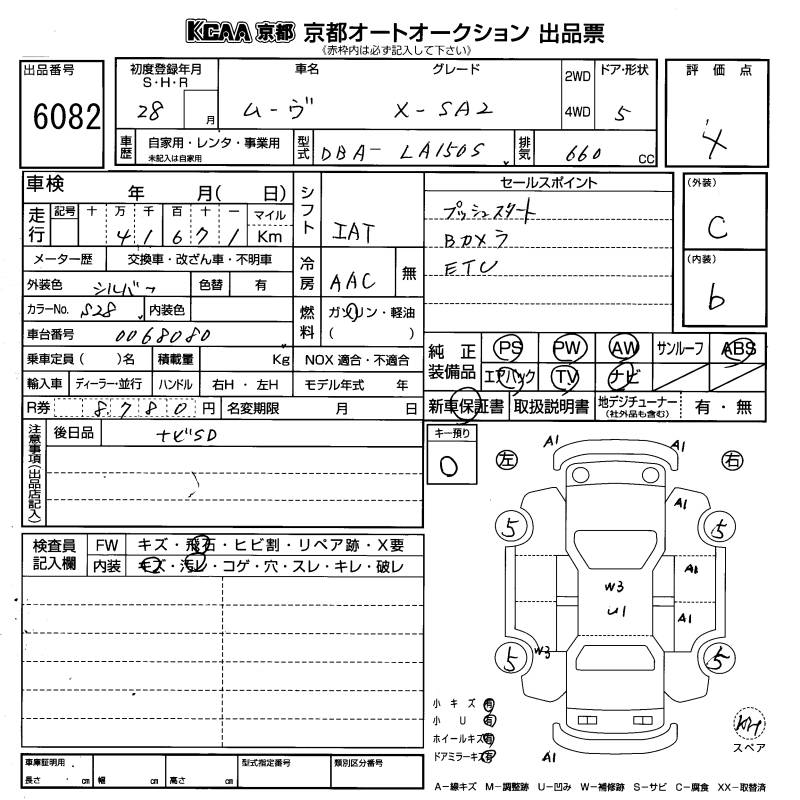 KCAA 京都 京都オートオークション 出品票
《赤枠内は必ず記入して下さい》
出品番号 6082
初度登録年月 S・H・R 28 月
車名 ムーヴ
グレード X-SA2
2WD 4WD
ドア・形状 5
評価点 4
車歴 自家用・レンタ・事業用 未記入は自家用
型式 DBA- LA150S
排気 660 CC
車検 年 月( 日)
シフト IAT
セールスポイント
プッシュスタート
Bカメラ
ETC
(外装) C
(内装) b
走行 記号 十 万 千 百 十 一 マイル
4 1 6 7 1 Km
メーター歴 交換車・改ざん車・不明車
冷房 AAC 無
外装色 シルバー 色替 有
カラーNo. S28 内装色
燃料 ガソリン・軽油 ( )
車台番号 0068080
純正装備品 PS PW AW サンルーフ ABS
エアバック TV ナビ
乗車定員( )名 積載量 Kg NOX 適合・不適合
輸入車 ディーラー・並行 ハンドル 右H・左H モデル年式 年
新車保証書 取扱説明書 地デジチューナー (社外品も含む) 有・無
R券 8,780 円 名変期限 月 日
注意事項(出品店記入)
後日品 ナビSD
キー預り 0
左 右
A1 A1
A1
5 5
A1
W3
U1
A1
W3
5 5
A1
検査員記入欄 FW キズ・飛石・ヒビ割・リペア跡・X要
内装 キズ・汚レ・コゲ・穴・スレ・キレ・破レ
小キズ 有
小U 有
ホイールキズ 有
ドアミラーキズ 有
スペア
車庫証明用 長さ cm 幅 cm 高さ cm
型式指定番号
類別区分番号
A-線キズ M-調整跡 U-凹み W-補修跡 S-サビ C-腐食 XX-取替済